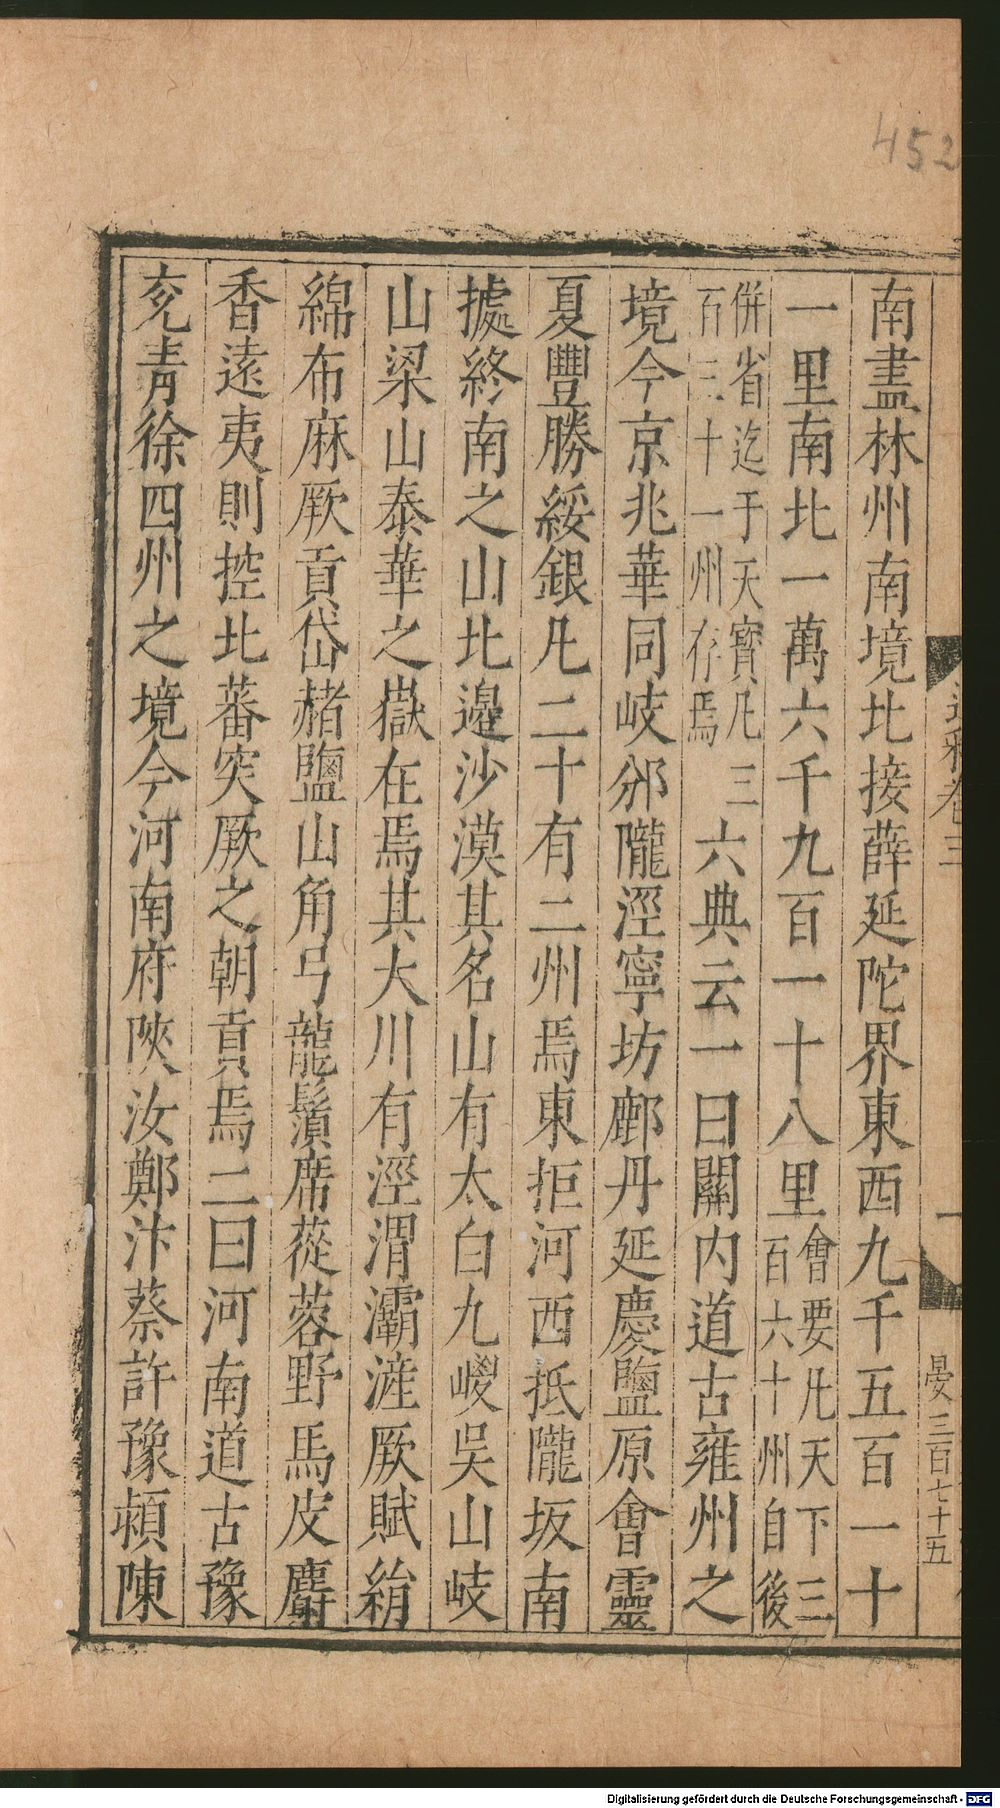 452
南盡林州南境北接薛延陀界東西九千五百一十
一里南北一萬六千九百一十八里會要凡天下三
百六十州自後
併省迄于天寶凡三
百三十一州存焉六典云一曰關內道古雍州之
境今京兆華同岐邠隴涇寧坊鄜丹延慶鹽原會靈
夏豐勝綏銀凡二十有二州焉東拒河西抵隴坂南
據終南之山北邊沙漠其名山有太白九嵕吳山岐
山梁山泰華之嶽在焉其大川有涇渭灞滻厥賦絹
綿布麻厥貢岱赭鹽山角弓龍鬚席蓯蓉野馬皮麝
香遠夷則控北蕃突厥之朝貢焉二曰河南道古豫
兗青徐四州之境今河南府陝汝鄭汴蔡許豫潁陳
卷三
一
晏三百七十五
Digitalisierung gefördert durch die Deutsche Forschungsgemeinschaft - DFG